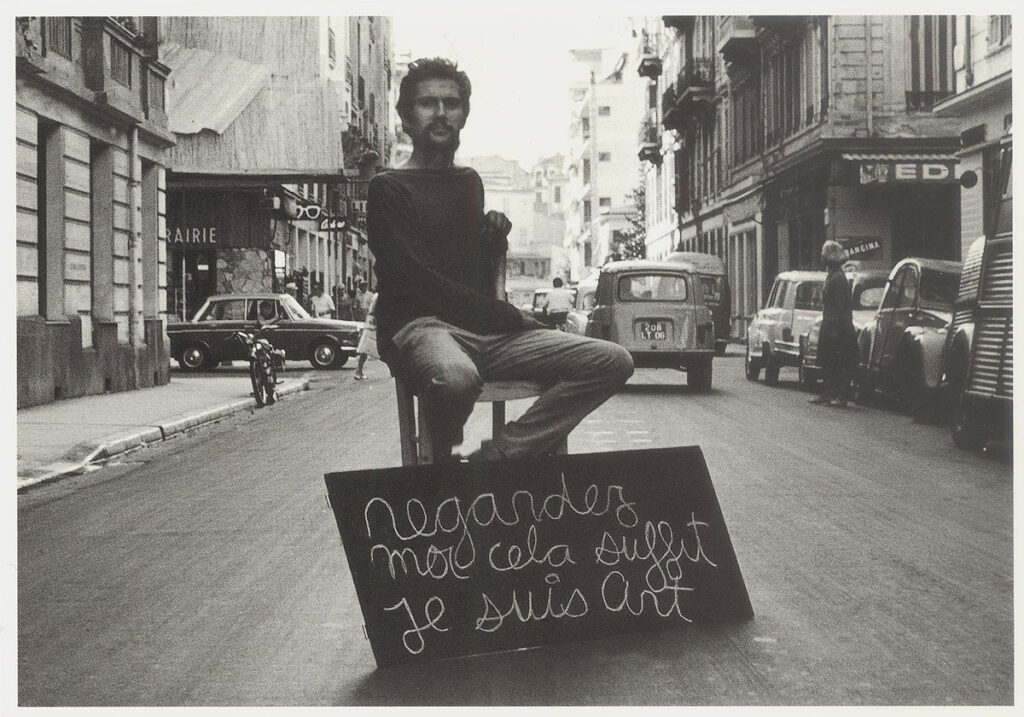 RAIRIE
MED
208
LT 06
regardez
moi cela suffit
je suis art